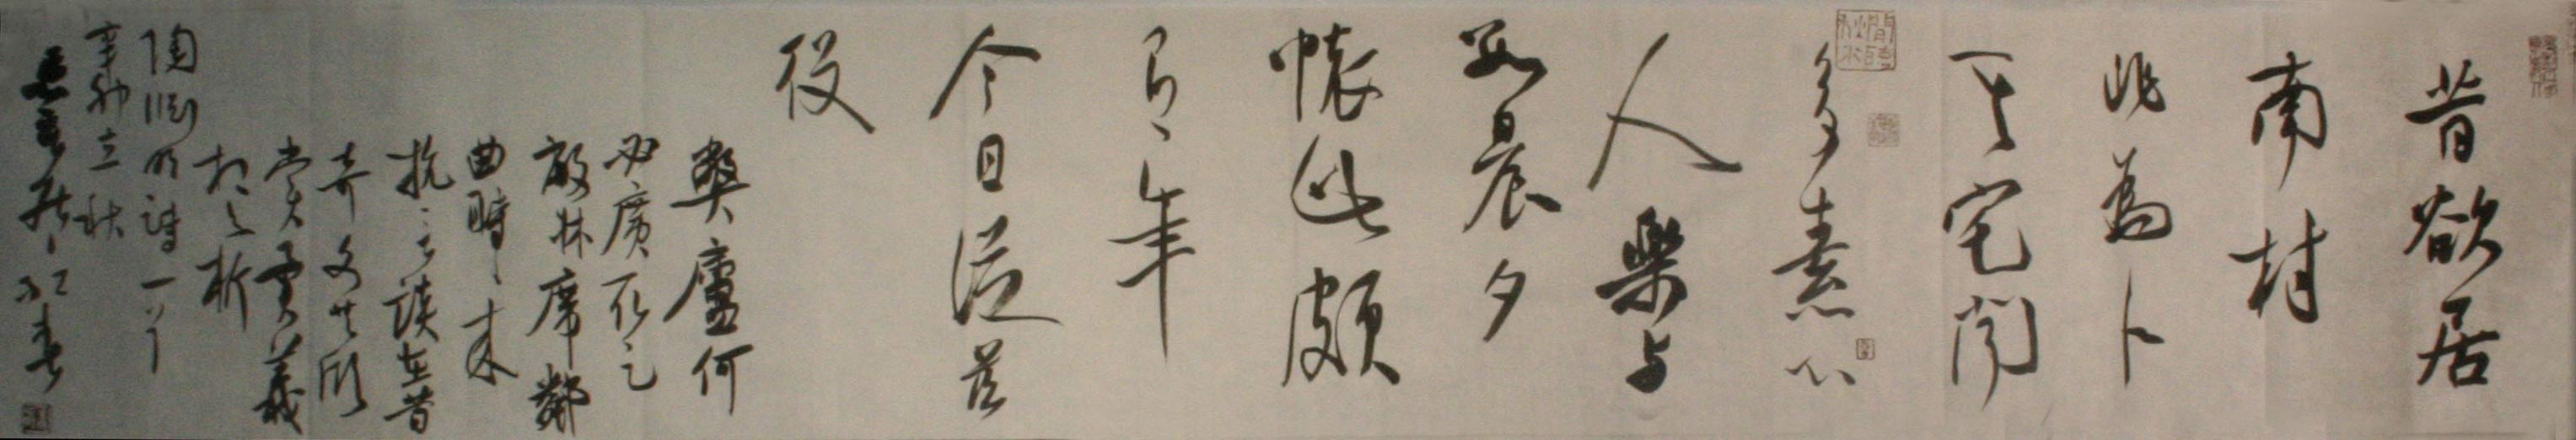 昔欲居
南村
非為卜
其宅聞
多素心
人樂与
數晨夕
懷此頗
有年
今日從茲
役
弊廬何
必廣取足
蔽床席鄰
曲時時來
抗言談在昔
奇文共欣
賞疑義
相與析
陶淵明詩一首
辛卯立秋